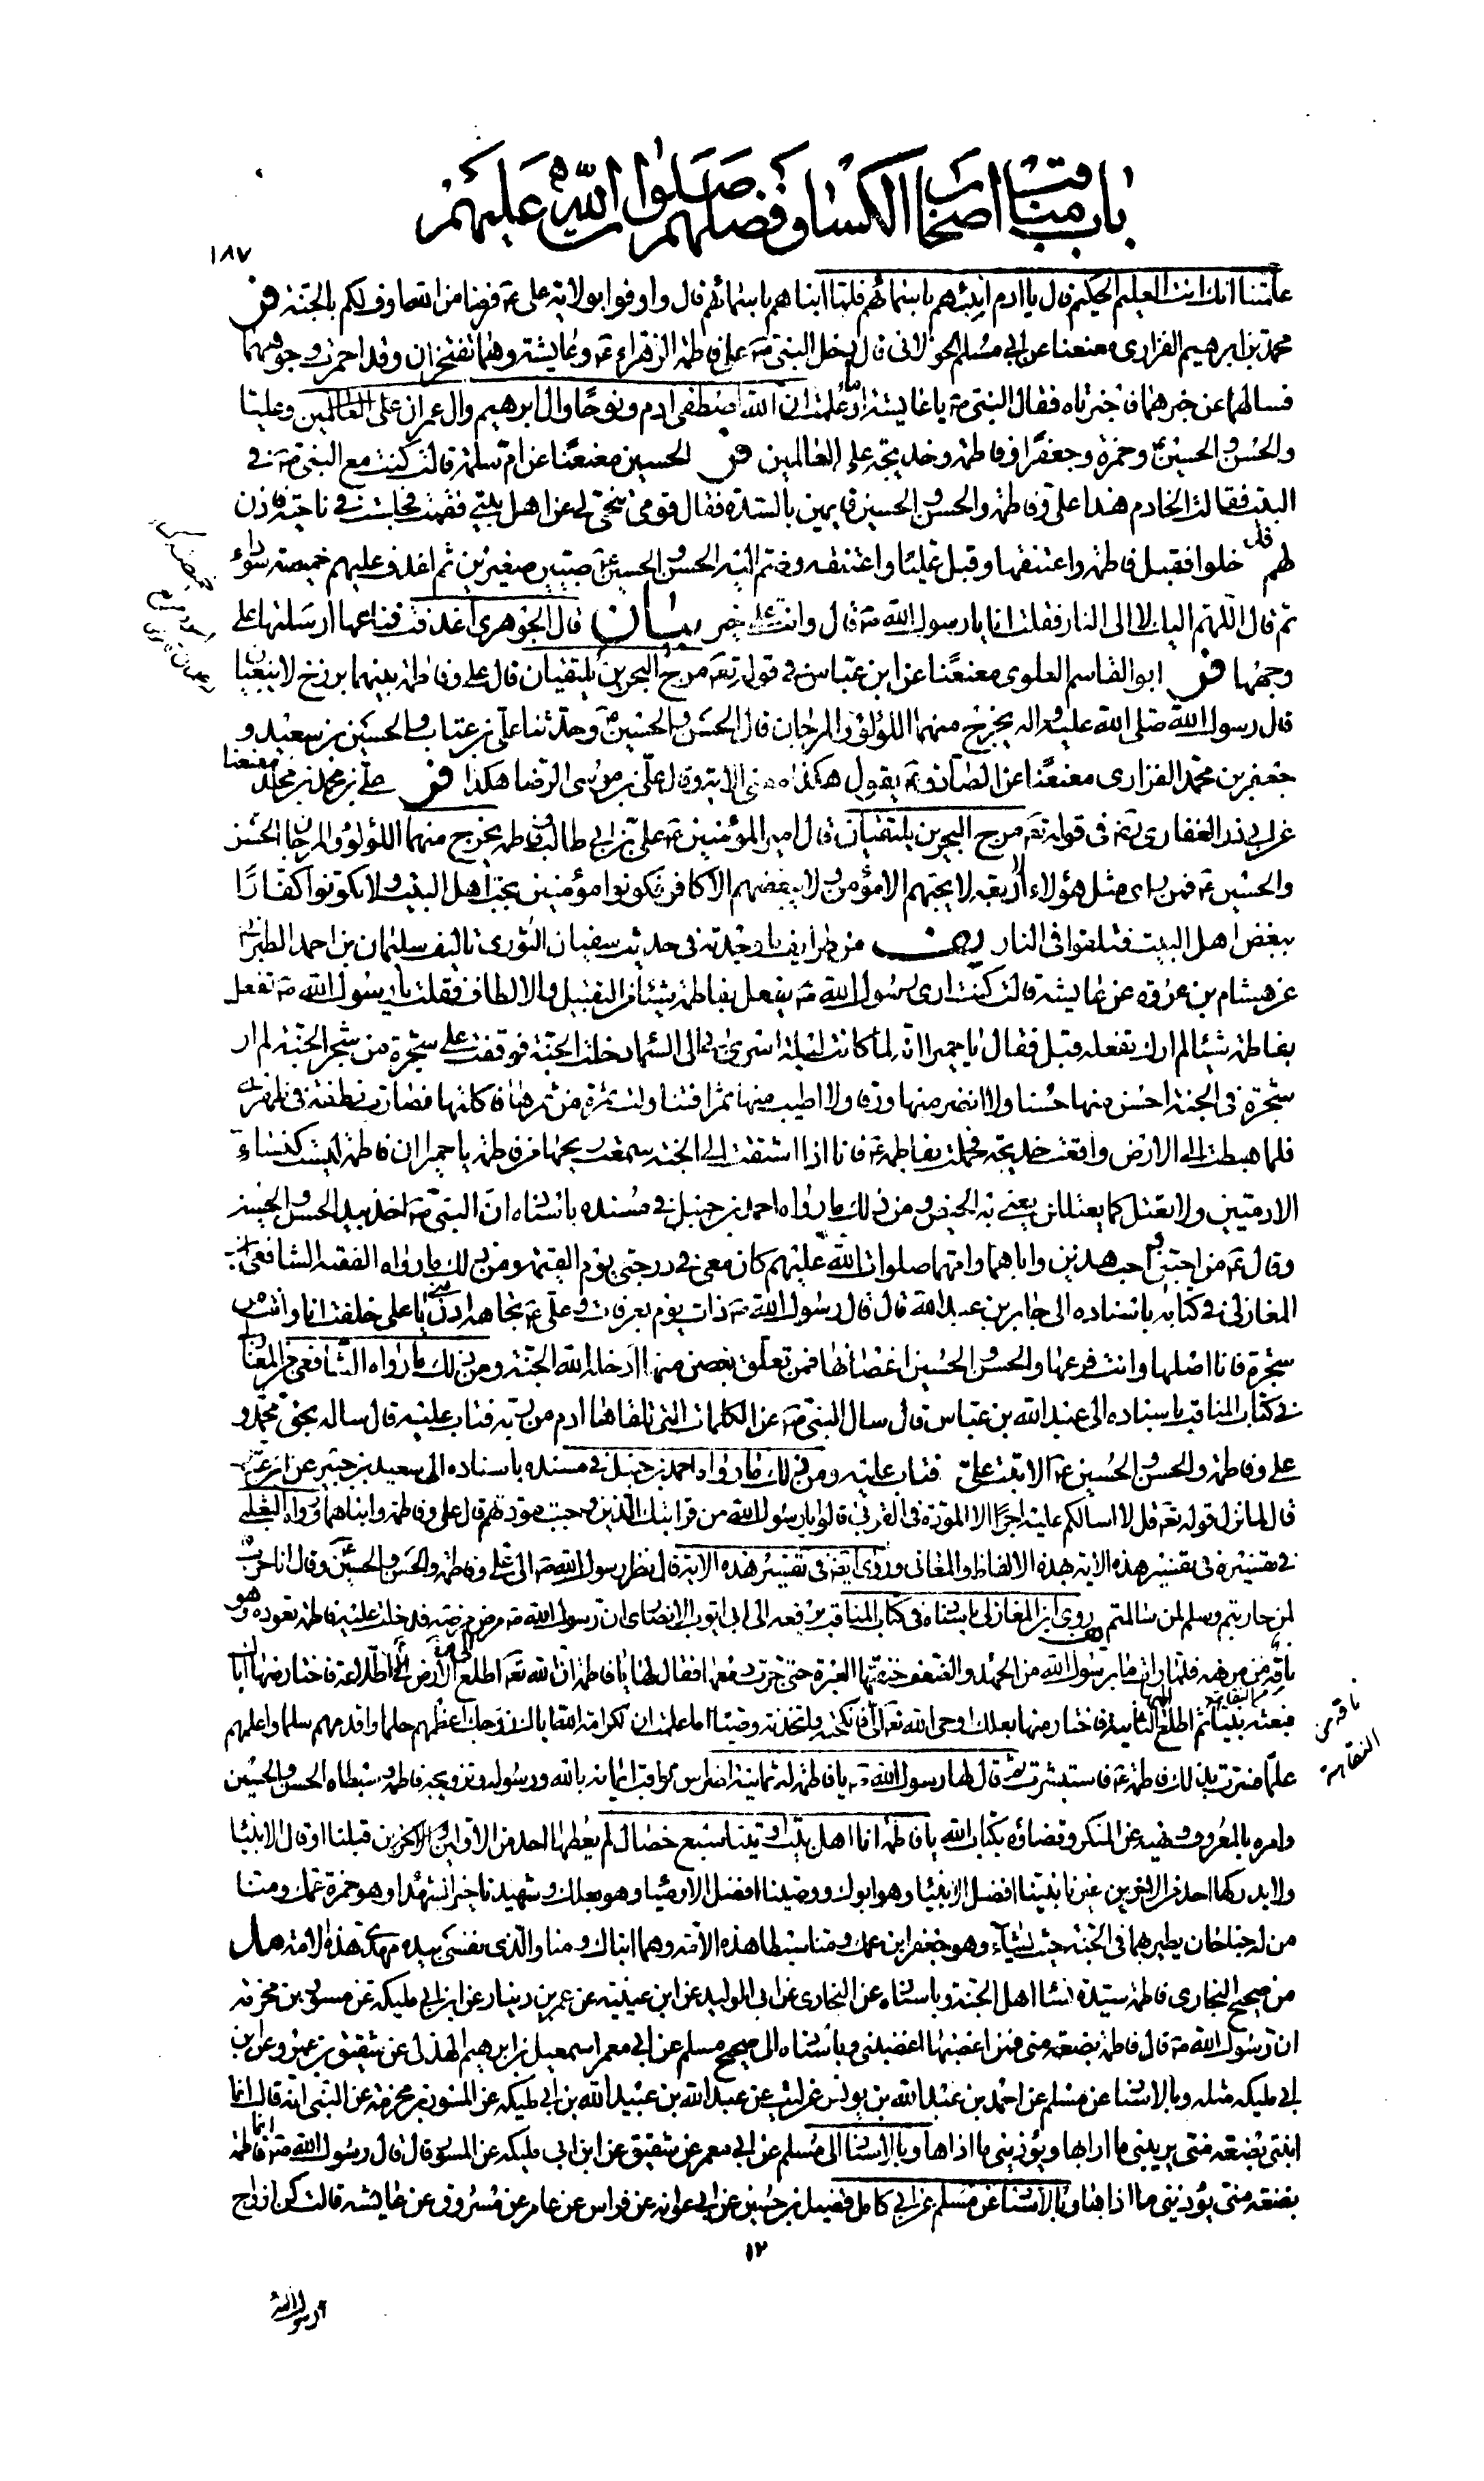 باب مناقب اصحاب الكساء و فضلهم صلوات الله عليهم
١٨٧
علمتنا انك انت العليم الحكيم قال يا ادم انبئهم باسمائهم فلما انباهم باسمائهم قال واوفوا بولاية على ع فرضا من الله اوف لكم بالجنة فر
محمد بن ابرهيم الفزارى معنعنا عن ابى مسلم الخولانى قال دخل النبى ص على فاطمة الزهراء ع وعايشة وهما تفتخران وقد احمرت وجوههما
فسالهما عن خبرهما فاخبرتاه فقال النبى ص يا عايشة اوما علمت ان الله اصطفى ادم ونوحا وال ابرهيم وال عمران على العالمين وعليا
والحسن والحسين وحمزة وجعفرا وفاطمة وخديجة على العالمين فر الحسين معنعنا عن ام سلمة قالت كنت مع النبى ص فى
البيت فقالت الخادم هذا على وفاطمة والحسن والحسين قايمين بالسدة فقال قومى تنحى لى عن اهل بيتى فقمت فجلست فى ناحية فاذن
لهم فدخلوا فقبل فاطمة واعتنقها وقبل عليا واعتنقه وضم اليه الحسن والحسين ع صبيين صغيرين ثم اغدف عليهم خميصة سوداء
ثم قال اللهم اليك لا الى النار فقلت انا يا رسول الله ص قال وانت على خير بيان قال الجوهرى اغدفت قناعها ارسلتها على
وجهها فر ابو القاسم العلوى معنعنا عن ابن عباس فى قوله تعم مرج البحرين يلتقيان قال على وفاطمة بينهما برزخ لا يبغيان
قال رسول الله صلى الله عليه واله يخرج منهما اللؤلؤ والمرجان قال الحسن والحسين ع وحدثنا على بن عتاب والحسين بن سعيد و
جعفر بن محمد الفزارى معنعنا عن الصادق ع يقول هكذا معنى الاية وقال على بن موسى الرضا هكذا فر على بن محمد بن مخلد معنعنا
عن ابى ذر الغفارى ره فى قوله تعم مرج البحرين يلتقيان قال امير المؤمنين ع على بن ابى طالب وفاطمة يخرج منهما اللؤلؤ والمرجان الحسن
والحسين ع فمن راى مثل هؤلاء الاربعة لا يحبهم الا مؤمن ولا يبغضهم الا كافر فكونوا مؤمنين بحب اهل البيت ولا تكونوا كفارا
ببغض اهل البيت فتلقوا فى النار يف من طرايف ما وجدته فى حديث سفيان الثورى تاليف سليمان بن احمد الطبرانى
عن هشام بن عروة عن عايشة قالت كنت ارى رسول الله ص يفعل بفاطمة شيئا من التقبيل والالطاف فقلت يا رسول الله ص تفعل
بفاطمة شيئا لم ارك تفعله قبل فقال يا حميرا انه لما كانت ليلة اسرى بى الى السماء دخلت الجنة فوقفت على شجرة من شجر الجنة لم ار
شجرة فى الجنة احسن منها حسنا ولا انضر منها ورقا ولا اطيب منها ثمرا فتناولت ثمرة من ثمرها فاكلتها فصارت نطفة فى ظهرى
فلما هبطت الى الارض واقعت خديجة فحملت بفاطمة ع فانا اذا اشتقت الى الجنة سمعت ريحها من فاطمة يا حميرا ان فاطمة ليست كنساء
الادميين ولا تعتل كما يعتللن يعنى به الحيض ومن ذلك ما رواه احمد بن حنبل فى مسنده باسناده ان النبى ص اخذ بيد الحسن والحسين
وقال ع من احبنى واحب هذين واباهما وامهما صلوات الله عليهم كان معى فى درجتى يوم القيمة ومن ذلك ما رواه الفقيه الشافعى ابن
المغازلى فى كتابه باسناده الى جابر بن عبد الله قال قال رسول الله ص ذات يوم بعرفات وعلى ع تجاهه ادن منى يا على خلقت انا وانت من
شجرة فانا اصلها وانت فرعها والحسن والحسين اغصانها فمن تعلق بغصن منها ادخله الله الجنة ومن ذلك ما رواه الشافعى بن المغازلى
فى كتاب المناقب باسناده الى عبد الله بن عباس قال سال النبى ص عن الكلمات التى تلقاها ادم من ربه فتاب عليه قال ساله بحق محمد و
على وفاطمة والحسن والحسين ع الا تبت على فتاب عليه ومن ذلك ما رواه احمد بن حنبل فى مسنده باسناده الى سعيد بن جبير عن ابن عباس
قال لما نزل قوله تعم قل لا اسالكم عليه اجرا الا المودة فى القربى قالوا يا رسول الله من قرابتك الذين وجبت مودتهم قال على وفاطمة وابناهما ورواه الثعلبى
فى تفسيره فى تفسير هذه الاية بهذه الالفاظ والمعانى وروى ايضا فى تفسير هذه الاية قال نظر رسول الله ص الى على وفاطمة والحسن والحسين ع وقال انا حرب
لمن حاربتم وسلم لمن سالمتم يف روى ابن المغازلى باسناده فى كتاب المناقب يرفعه الى ابى ايوب الانصارى ان رسول الله ص مرض مرضة فدخلت عليه فاطمة تعوده وهو
ناقه من مرضه فلما رات ما برسول الله من الجهد والضعف خنقتها العبرة حتى جرت دمعتها فقال لها يا فاطمة ان الله تعم اطلع الى الارض اطلاعة فاختار منها اباك
فبعثه نبيا ثم اطلع اليها الثانية فاختار منها بعلك فاوحى الله تعم الى فانكحته واتخذته وصيا اما علمت ان لكرامة الله اياك زوجك اعظمهم حلما واقدمهم سلما واعلمهم
علما فسرت بذلك فاطمة ع فاستبشرت ثم قال لها رسول الله ص يا فاطمة له ثمانية اضراس ثواقب ايمانه بالله ورسوله وتزويجه فاطمة وسبطاه الحسن والحسين
وامره بالمعروف ونهيه عن المنكر وقضاؤه بكتاب الله يا فاطمة انا اهل بيت اوتينا سبع خصال لم يعطها احد من الاولين والاخرين قبلنا او قال الانبيا
ولا يدركها احد من الاخرين غيرنا نبينا افضل الانبياء وهو ابوك ووصينا افضل الاوصيا وهو بعلك وشهيدنا خير الشهداء وهو حمزة عمك ومنا
من له جناحان يطير بهما فى الجنة حيث يشاء وهو جعفر ابن عمك ومنا سبطا هذه الامة وهما ابناك ومنا والذى نفسى بيده مهدى هذه الامة مد
من صحيح البخارى فاطمة سيدة نسا اهل الجنة وباسناده عن البخارى عن ابى الوليد عن ابن عيينة عن عمرو بن دينار عن ابن ابى مليكة عن مسور بن مخرمة
ان رسول الله ص قال فاطمة بضعة منى فمن اغضبها اغضبنى وباسناده الى صحيح مسلم عن ابى معمر اسمعيل بن ابرهيم الهذلى عن شقيق بن عمرو عن ابن
ابى مليكة مثله وبالاسنا عن مسلم عن احمد بن عبد الله بن يونس عن ليث عن عبد الله بن عبيد الله بن ابى مليكة عن المسور بن مخرمة عن النبى انه قال انما
ابنتى بضعة منى يريبنى ما ارابها ويؤذينى ما اذاها وبالاسنا الى مسلم عن ابى معمر عن شقيق عن ابن ابى مليكة عن المسور قال قال رسول الله ص انما فاطمة
بضعة منى يؤذينى ما اذاها وبالاسنا عن مسلم عن ابى كامل فضيل بن حسين عن ابى عوانة عن فراس عن عامر عن مسروق عن عايشة قالت كن ازواج
ناقه من
النقاهة
١٢
رسول الله